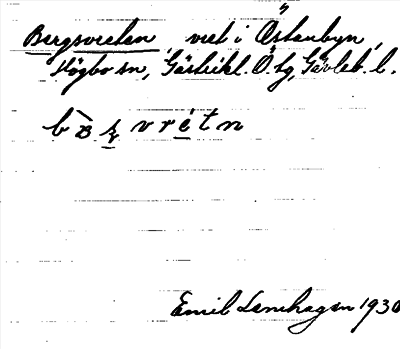 Bergsvreten vret i Östanbyn,
Högbo sn, Gästrikl. Ö. tg, Gävleb. l.
Emil Lenhagen 1930